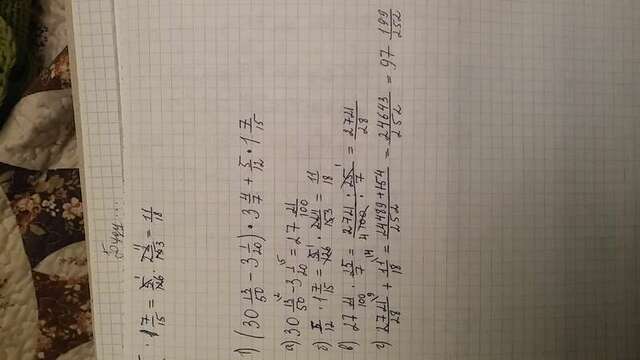 Буду...
· 1 7/15 = 5/126 · 22/153 = 11/18
1) (30 13/50 - 3 1/20) · 3 4/7 + 5/12 · 1 7/15
а) 30 13/50 - 3 1/20 = 27 21/100
б) 5/12 · 1 7/15 = 5/126 · 22/153 = 11/18
в) 27 21/100 · 25/7 = 2721 · 25/4100 · 7 = 2721/28
г) 2721/28 + 11/18 = 24489 + 154/252 = 24643/252 = 97 199/252